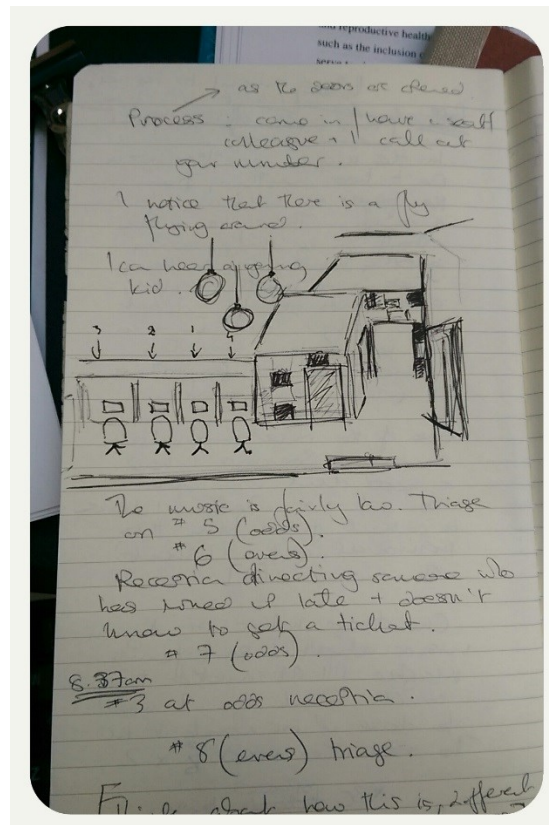 and reproductive health
such as the inclusion
as the doors are opened
Process : come in / have a seat /
colleague + I call out
your number.
I notice that there is a fly
flying around.
I can hear a young
kid.
3 2 1 4
The music is fairly low. Triage
on # 5 (odds).
# 6 (evens).
Reception directing someone who
has turned up late + doesn't
know to get a ticket.
# 7 (odds).
8.37am
#3 at odds reception.
# 8 (evens) triage.
Think about how this is different